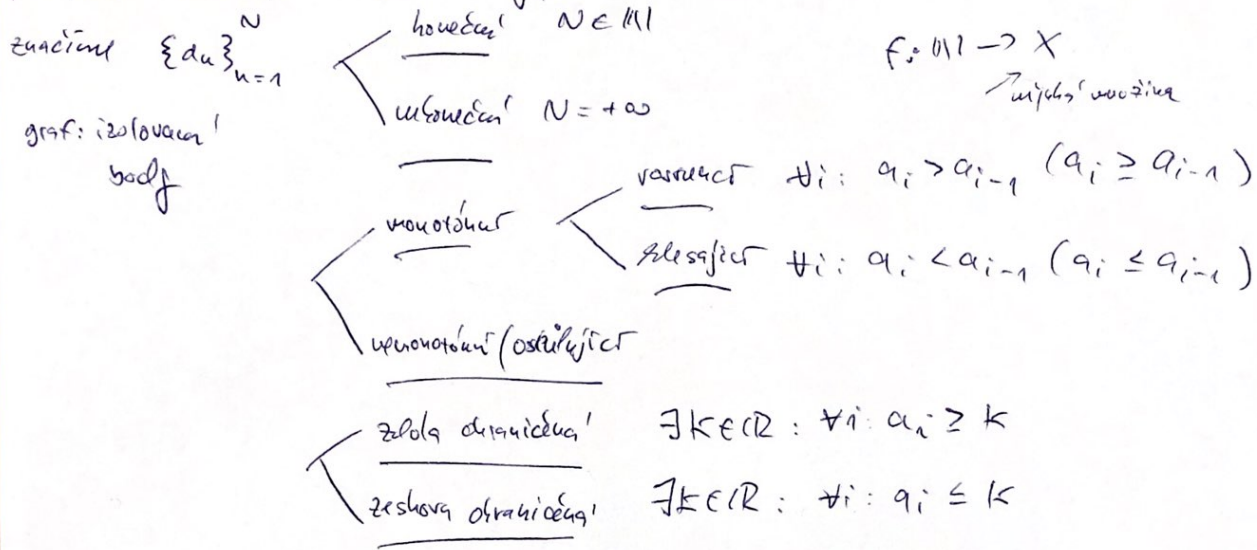 značíme {aₙ}ₙ₌₁ᴺ
konečná N ∈ ℕ
nekonečná N = +∞
f: ℕ → X
nějaká množina
graf: izolované body
monotónní
rostoucí ∀i: aᵢ > aᵢ₋₁ (aᵢ ≥ aᵢ₋₁)
klesající ∀i: aᵢ < aᵢ₋₁ (aᵢ ≤ aᵢ₋₁)
nemonotónní / oscilující
zdola ohraničená ∃K∈ℝ: ∀i: aᵢ ≥ K
zeshora ohraničená ∃K∈ℝ: ∀i: aᵢ ≤ K